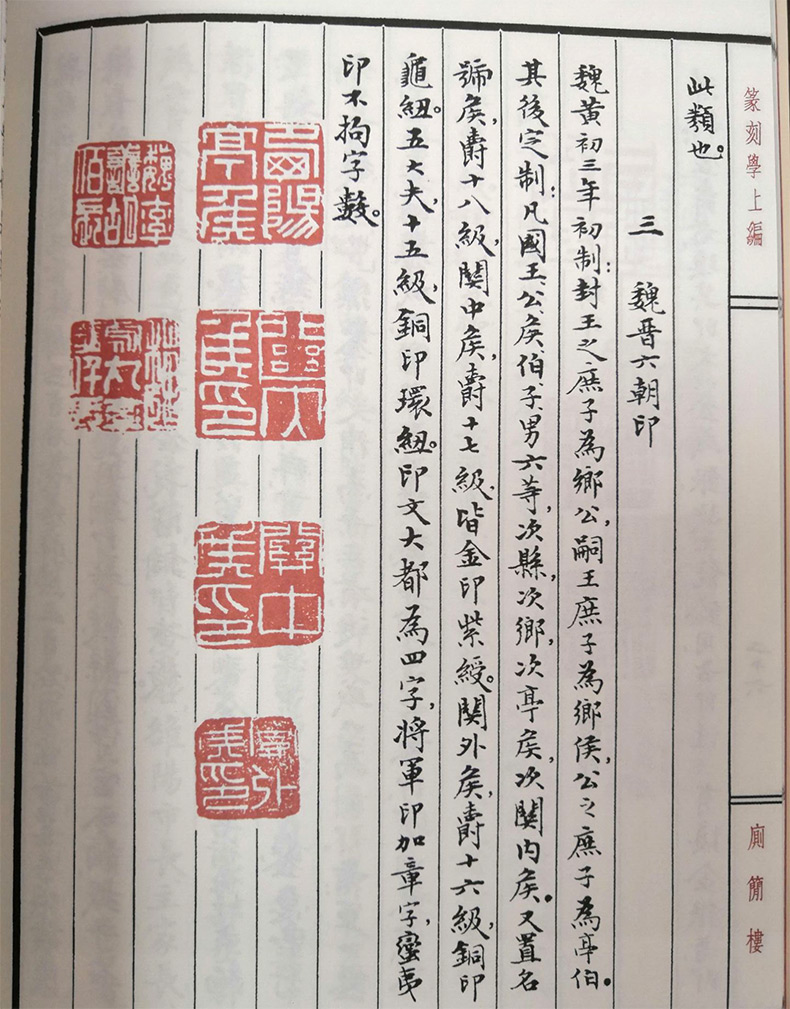 篆刻學上編
廁簡樓
此類也。
三 魏晋六朝印
魏黃初三年初制：封王之庶子為鄉公，嗣王庶子為鄉侯，公之庶子為亭伯。
其後定制：凡國王、公、矦、伯、子、男六等，次縣，次鄉，次亭矦，次關内矦。又置名
號矦，爵十八級，關中矦，爵十七級，皆金印紫綬。關外矦，爵十六級，銅印
龜紐。五大夫，十五級，銅印環紐。印文大都為四字，將軍印加章字，蠻夷
印不拘字數。
陽亭矦
關内矦印
關中矦印
關外矦印
魏率善胡佰長